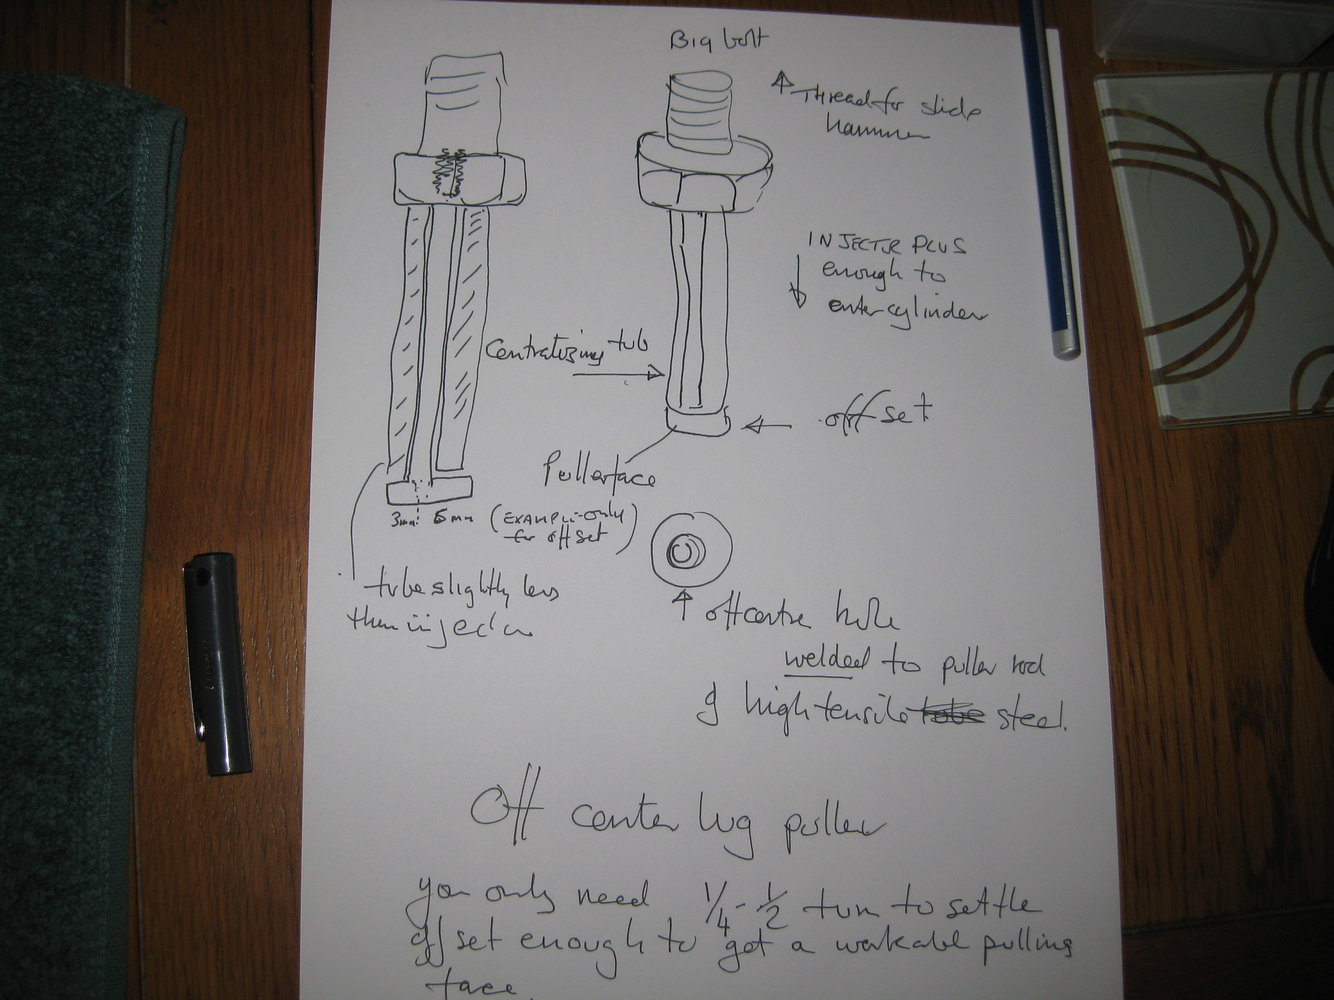 Big bolt
↑ Thread for slide
hammer
INJECTR PLUS
enough to
enter cylinder
Centralising tub
offset
Pullerface
3mm 5mm (EXAMPLE-only
for offset)
tube slightly less
then injector
↑ offcentre hole
welded to puller rod
of high tensile steel.
Off center lug puller
you only need 1/4-1/2 turn to settle
off set enough to get a workable pulling
face